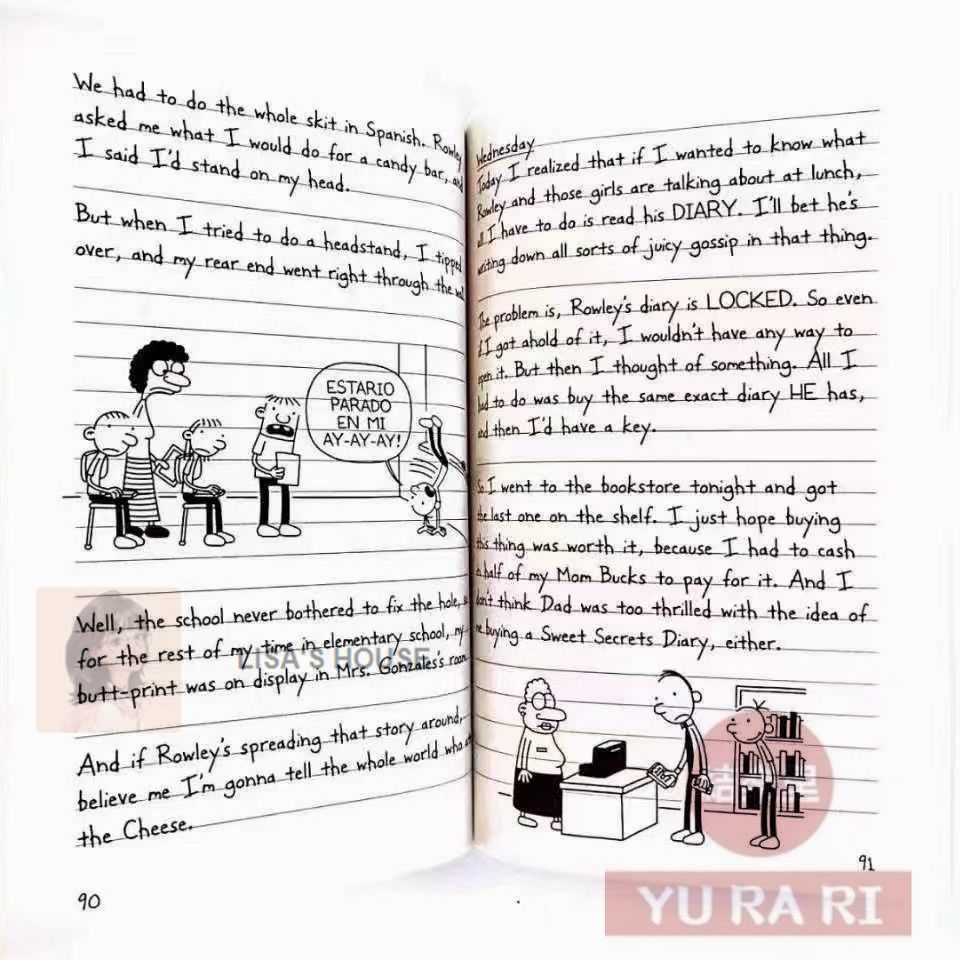 We had to do the whole skit in Spanish. Rowley
asked me what I would do for a candy bar, and
I said I'd stand on my head.
But when I tried to do a headstand, I tipped
over, and my rear end went right through the wall.
ESTARIO
PARADO
EN MI
AY-AY-AY!
Well, the school never bothered to fix the hole, so
for the rest of my time in elementary school, my
butt-print was on display in Mrs. Gonzales's room.
And if Rowley's spreading that story around,
believe me I'm gonna tell the whole world who ate
the Cheese.
90
Wednesday
Today I realized that if I wanted to know what
Rowley and those girls are talking about at lunch,
all I have to do is read his DIARY. I'll bet he's
writing down all sorts of juicy gossip in that thing.
The problem is, Rowley's diary is LOCKED. So even
if I got ahold of it, I wouldn't have any way to
open it. But then I thought of something. All I
had to do was buy the same exact diary HE has,
and then I'd have a key.
So I went to the bookstore tonight and got
the last one on the shelf. I just hope buying
this thing was worth it, because I had to cash
in half of my Mom Bucks to pay for it. And I
don't think Dad was too thrilled with the idea of
me buying a Sweet Secrets Diary, either.
91
LISA'S HOUSE
YU RA RI